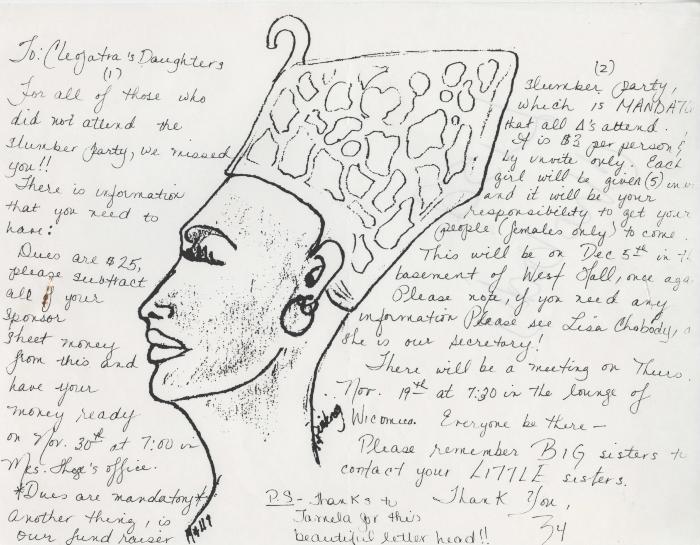 To: Cleopatra's Daughters
(1)
For all of those who
did not attend the
slumber party, we missed
you!!
There is information
that you need to
have:
Dues are $25,
please subtract
all of your
sponsor
sheet money
from this and
have your
money ready
on Nov. 30th at 7:00 in
Mrs. office.
*Dues are mandatory*
another thing, is
our fund raiser
(2)
slumber party,
which is MANDATO
that all Δ's attend.
It is $3 per person &
by invite only. Each
girl will be given (5) inv
and it will be your
responsibility to get your
people (females only) to come.
This will be on Dec 5th in th
basement of West Hall, once aga
Please note, if you need any
information Please see Lisa Chobody, a
she is our secretary!
There will be a meeting on Thurs.
Nov. 19th at 7:30 in the lounge of
Wicomico. Everyone be there—
Please remember BIG sisters to
contact your LITTLE sisters.
Thank You,
34
P.S- Thanks to
Tamela for this
beautiful letter head!!